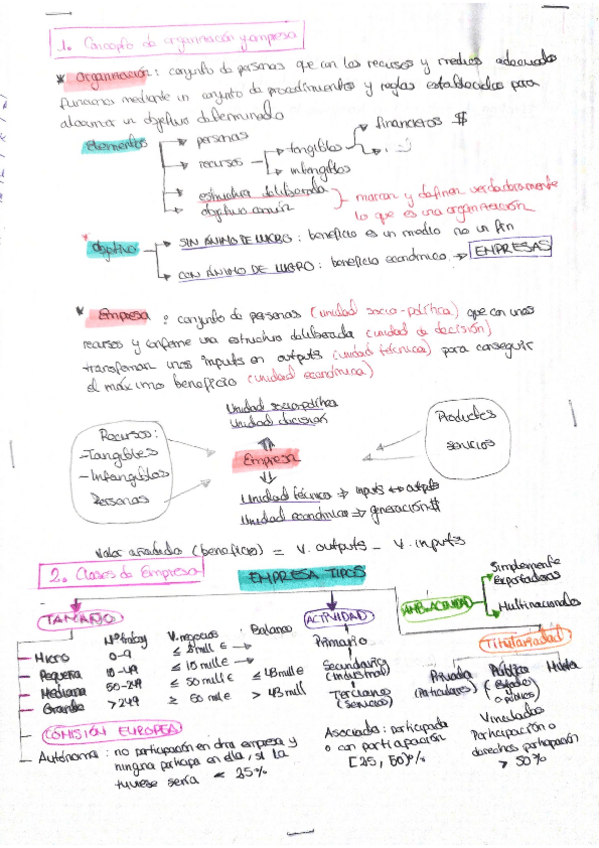 1. Concepto de organización y empresa
* Organización: conjunto de personas que con los recursos y medios adecuados
funciona mediante un conjunto de procedimientos y reglas establecidas para
alcanzar un objetivo determinado
Elementos
personas
recursos
tangibles
financieros $
intangibles
estructura deliberada
objetivo común
marcan y definen verdaderamente
lo que es una organización
Objetivo
SIN ÁNIMO DE LUCRO: beneficio es un medio no un fin
CON ÁNIMO DE LUCRO: beneficio económico → EMPRESAS
* Empresa: conjunto de personas (unidad socio-política) que con unos
recursos y conforme una estructura deliberada (unidad de decisión)
transforman unos inputs en outputs (unidad técnica) para conseguir
el máximo beneficio (unidad económica)
Unidad sociopolítica
Unidad decisión
Recursos:
-Tangibles
-Intangibles
Personas
Empresa
Productos
servicios
Unidad técnica → inputs ↔ outputs
Unidad económica → generación $
Valor añadido (beneficio) = V. outputs - V. inputs
2. Clases de Empresa
EMPRESA TIPOS
TAMAÑO
Nº trabaj
V. negocios
Balance
Micro 0-9 ≤ 2 mill €
Pequeña 10-49 ≤ 10 mill €
Mediana 50-249 ≤ 50 mill € ≤ 43 mill €
Grande >249 ≥ 50 mill € > 43 mill
COMISIÓN EUROPEA
Autónoma: no participación en otra empresa y
ninguna participa en ella, si la
tuviese sería < 25%
ACTIVIDAD
Primario
Secundario
(Industrial)
Terciario
(Servicios)
Asociada: participada
o con participación
[25, 50)%
AMB. ACTIVIDAD
Simplemente
Exportadoras
Multinacionales
Titularidad
Privada
(Particulares)
Pública
(Estado
y
o. públicos)
Mixta
Vinculadas
Participación o
derechos participación
> 50%